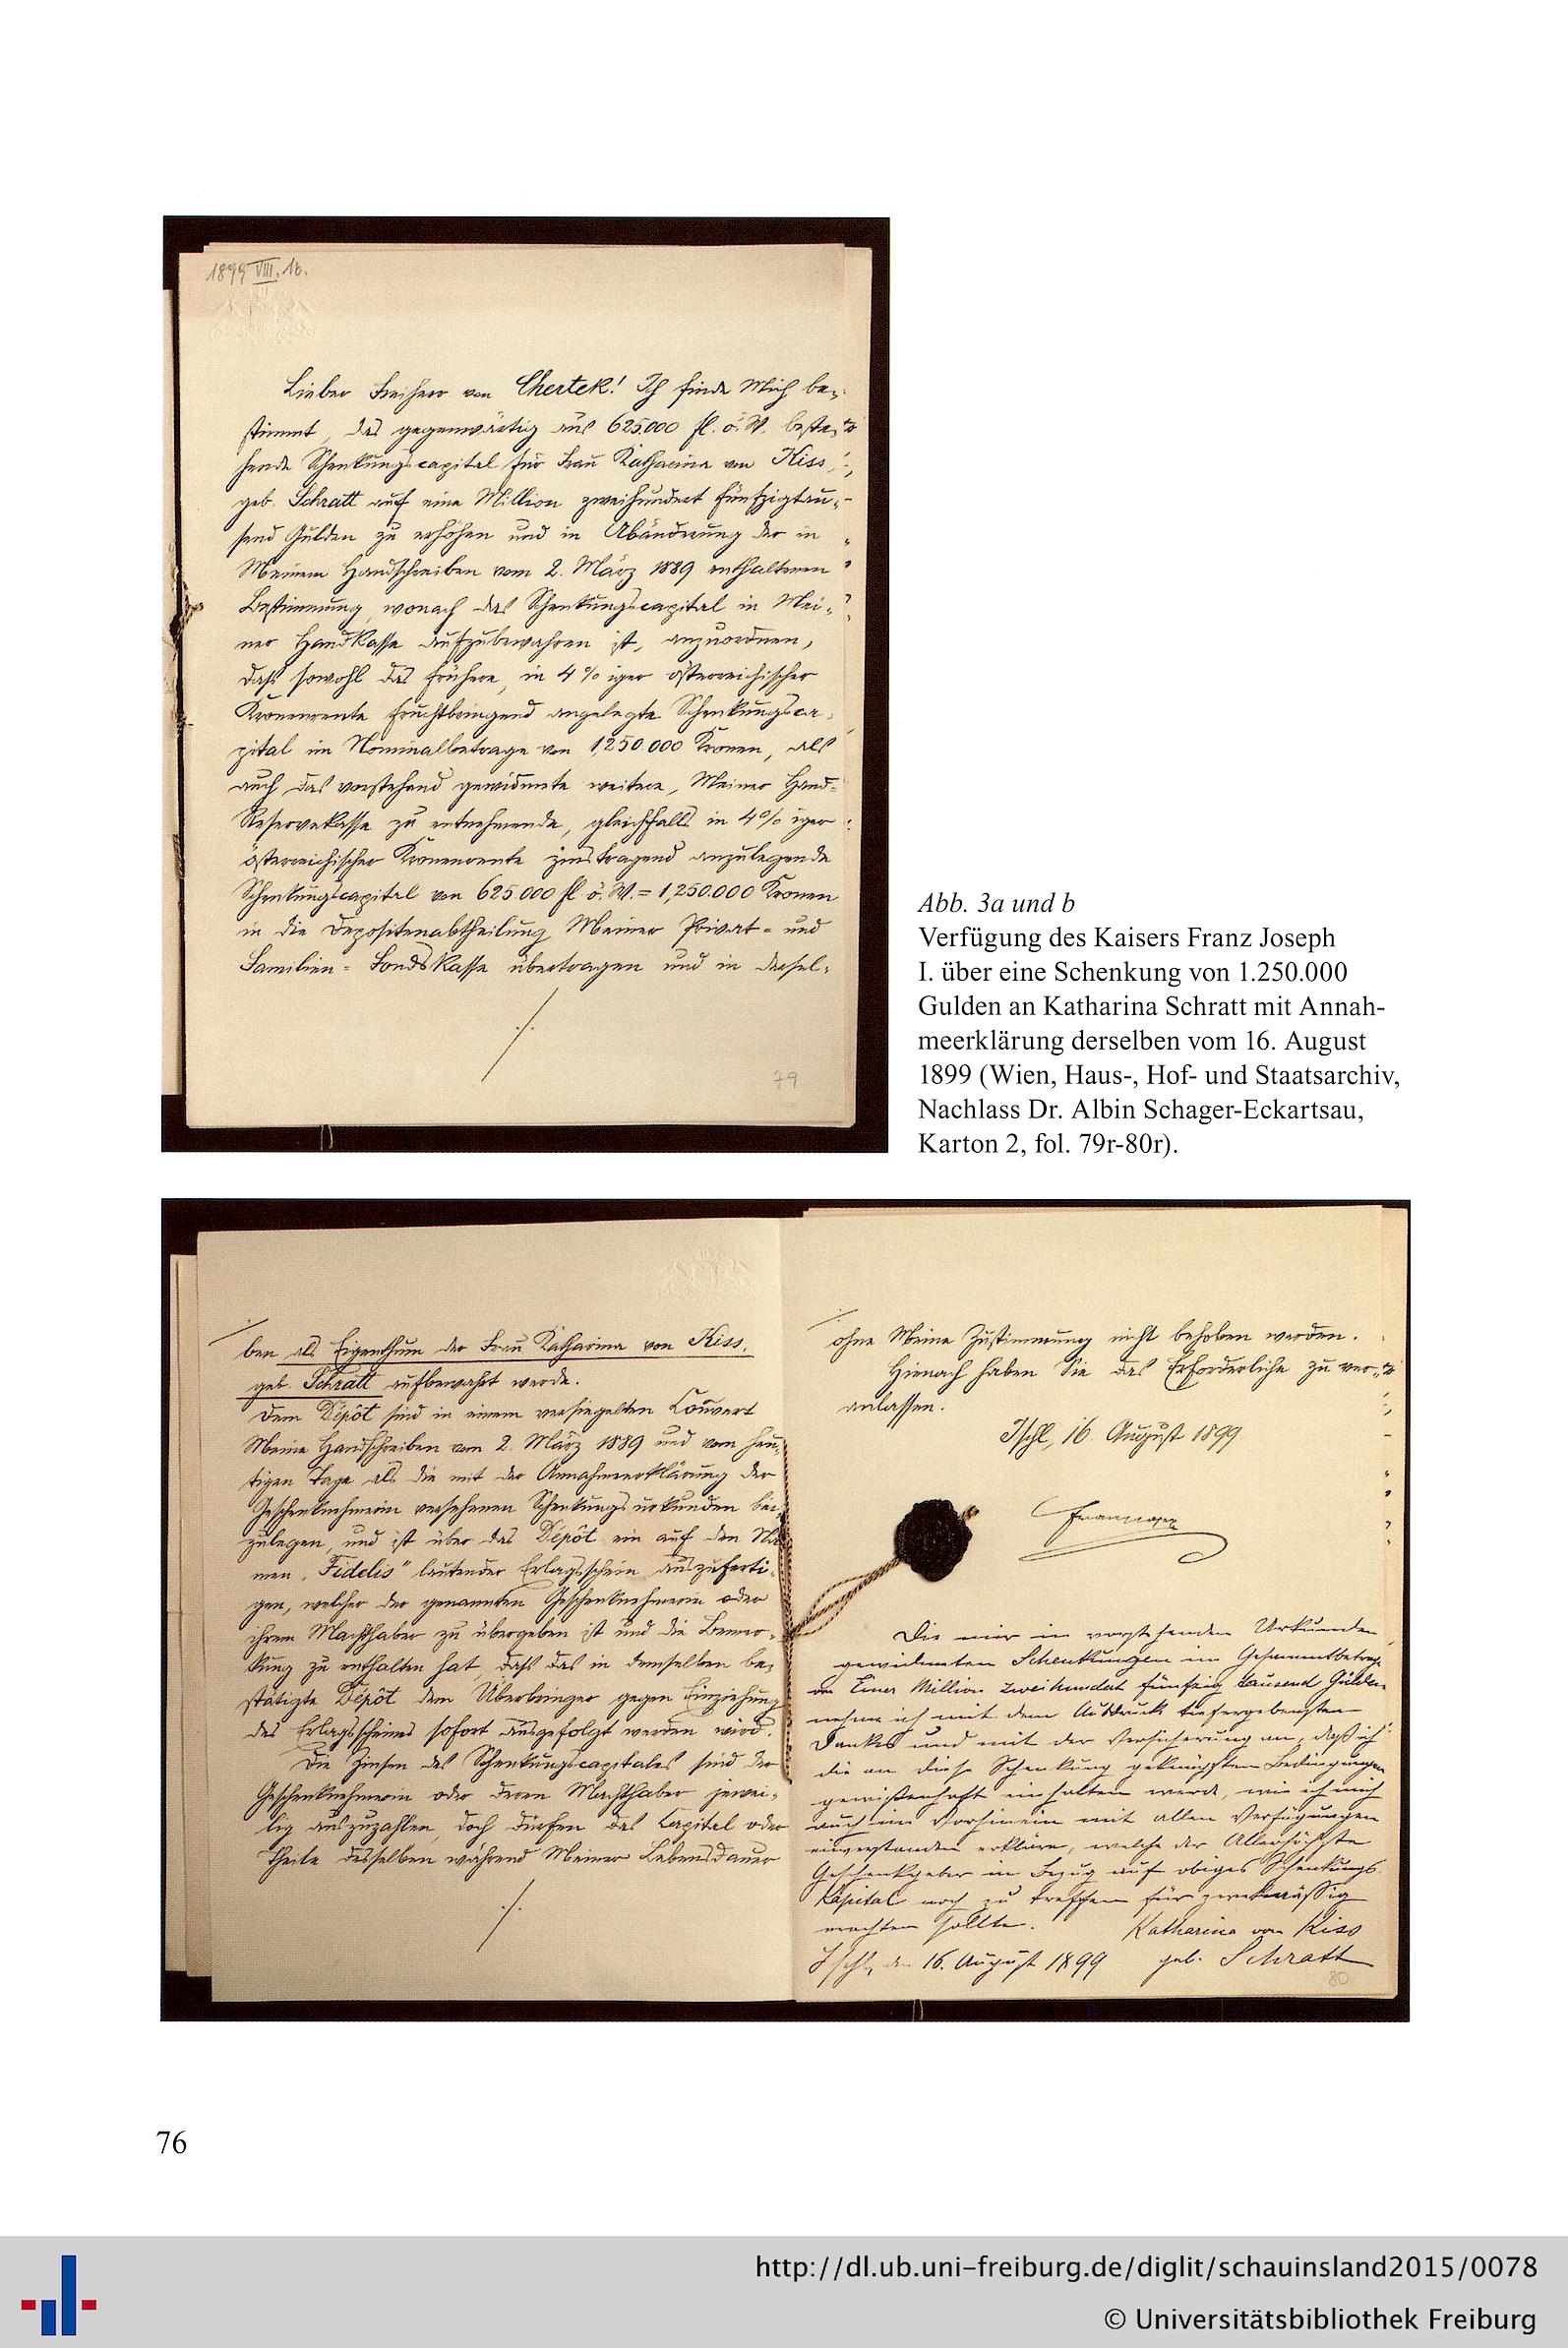 1899 VIII. 16.
Lieber Freiherr von Chertek! Ich finde Mich be-
stimmt, das gegenwärtig aus 625.000 fl. ö. W. beste-
hende Schenkungscapital für Frau Katharina von Kiss,
geb. Schratt auf eine Million zweihundert fünfzigtau-
send Gulden zu erhöhen und in Abänderung der in
Meinem Handschreiben vom 2. März 1889 enthaltenen
Bestimmung, wonach das Schenkungscapital in Mei-
ner Handkasse aufzubewahren ist, anzuordnen,
daß sowohl das frühere, in 4% iger österreichischer
Kronenrente fruchtbringend angelegte Schenkungsca-
pital im Nominalbetrage von 1,250.000 Kronen, als
auch das vorstehend gewidmete weitere, Meiner Hand-
Reservekasse zu entnehmende, gleichfalls in 4% iger
österreichischer Kronenrente zinstragend anzulegende
Schenkungscapital von 625.000 fl ö. W. = 1,250.000 Kronen
in die Depositenabtheilung Meiner Privat- und
Familien-Fondskasse übertragen und in dersel-
./.
79
Abb. 3a und b
Verfügung des Kaisers Franz Joseph
I. über eine Schenkung von 1.250.000
Gulden an Katharina Schratt mit Annah-
meerklärung derselben vom 16. August
1899 (Wien, Haus-, Hof- und Staatsarchiv,
Nachlass Dr. Albin Schager-Eckartsau,
Karton 2, fol. 79r-80r).
ben als Eigenthum der Frau Katharina von Kiss,
geb. Schratt aufbewahrt werde.
Dem Dépôt sind in einem versiegelten Couvert
Meine Handschreiben vom 2. März 1889 und vom heu-
tigen Tage als die mit der Annahmeerklärung der
Geschenknehmerin versehenen Schenkungsurkunden bei-
zulegen, und ist über das Dépôt ein auf den Na-
men „Fidelis" lautender Erlagsschein auszuferti-
gen, welcher der genannten Geschenknehmerin oder
ihrem Machthaber zu übergeben ist und die Bemer-
kung zu enthalten hat, daß das in demselben be-
stätigte Dépôt dem Überbringer gegen Einziehung
des Erlagsscheines sofort ausgefolgt werden wird.
Die Zinsen des Schenkungscapitales sind der
Geschenknehmerin oder deren Machthaber jewei-
lig auszuzahlen, doch dürfen das Capital oder
Theile desselben während Meiner Lebensdauer
./.
ohne Meine Zustimmung nicht behoben werden.
Hienach haben Sie das Erforderliche zu ver-
anlassen.
Ischl, 16. August 1899
Franz Joseph
Die mir in vorstehenden Urkunden
gewidmeten Schenkungen im Gesammtbetrage
von Einer Million zweihundert fünfzig tausend Gulden
nehme ich mit dem Ausdruck tiefergebensten
Dankes und mit der Versicherung an, daß ich
die an diese Schenkung geknüpften Bedingungen
gewißenhaft einhalten werde, wie ich mich
auch im Vorhinein mit allen Verfügungen
einverstanden erkläre, welche der Allerhöchste
Geschenkgeber in Bezug auf obiges Schenkungs-
kapital noch zu treffen für zweckmässig
erachten sollte.
Katharina von Kiss
Ischl, den 16. August 1899 geb. Schratt
80
76
http://dl.ub.uni-freiburg.de/diglit/schauinsland2015/0078
© Universitätsbibliothek Freiburg